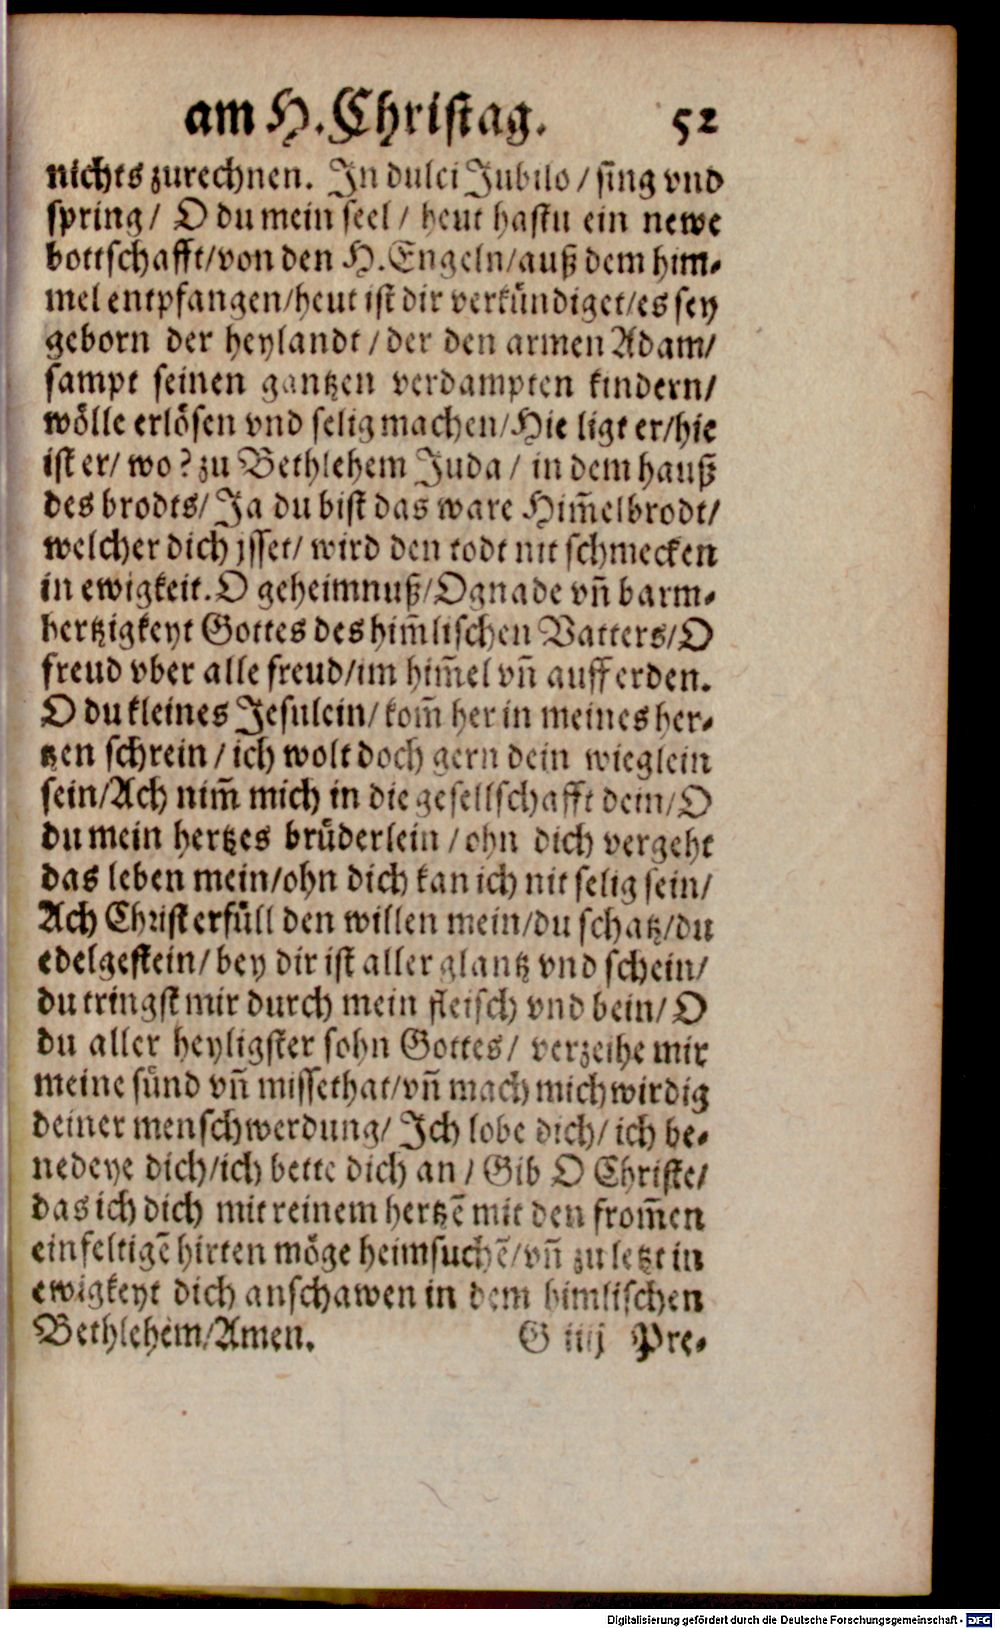 am H. Christag. 52
nichts zurechnen. In dulci Jubilo / sing vnd
spring / O du mein seel / heut hastu ein newe
bottschafft / von den H. Engeln / auß dem him-
mel entpfangen / heut ist dir verkündiget / es sey
geborn der heylandt / der den armen Adam /
sampt seinen gantzen verdampten kindern /
wölle erlösen vnd selig machen / Hie ligt er / hie
ist er / wo? zu Bethlehem Juda / in dem hauß
des brodts / Ja du bist das ware Him̃elbrodt /
welcher dich jsset / wird den todt nit schmecken
in ewigkeit. O geheimnuß / O gnade vñ barm-
hertzigkeyt Gottes des him̃lischen Vatters / O
freud vber alle freud / im him̃el vñ auff erden.
O du kleines Jesulein / kom̃ her in meines her-
tzen schrein / ich wolt doch gern dein wieglein
sein / Ach nim̃ mich in die gesellschafft dein / O
du mein hertzes brüderlein / ohn dich vergeht
das leben mein / ohn dich kan ich nit selig sein /
Ach Christ erfüll den willen mein / du schatz / du
edelgestein / bey dir ist aller glantz vnd schein /
du tringst mir durch mein fleisch vnd bein / O
du aller heyligster sohn Gottes / verzeihe mir
meine sünd vñ missethat / vñ mach mich wirdig
deiner menschwerdung / Ich lobe dich / ich be-
nedeye dich / ich bette dich an / Gib O Christe /
das ich dich mit reinem hertzẽ mit den from̃en
einfeltigẽ hirten möge heimsuchẽ / vñ zu letzt in
ewigkeyt dich anschawen in dem himlischen
Bethlehem / Amen. G iiij Pre-
Digitalisierung gefördert durch die Deutsche Forschungsgemeinschaft - DFG